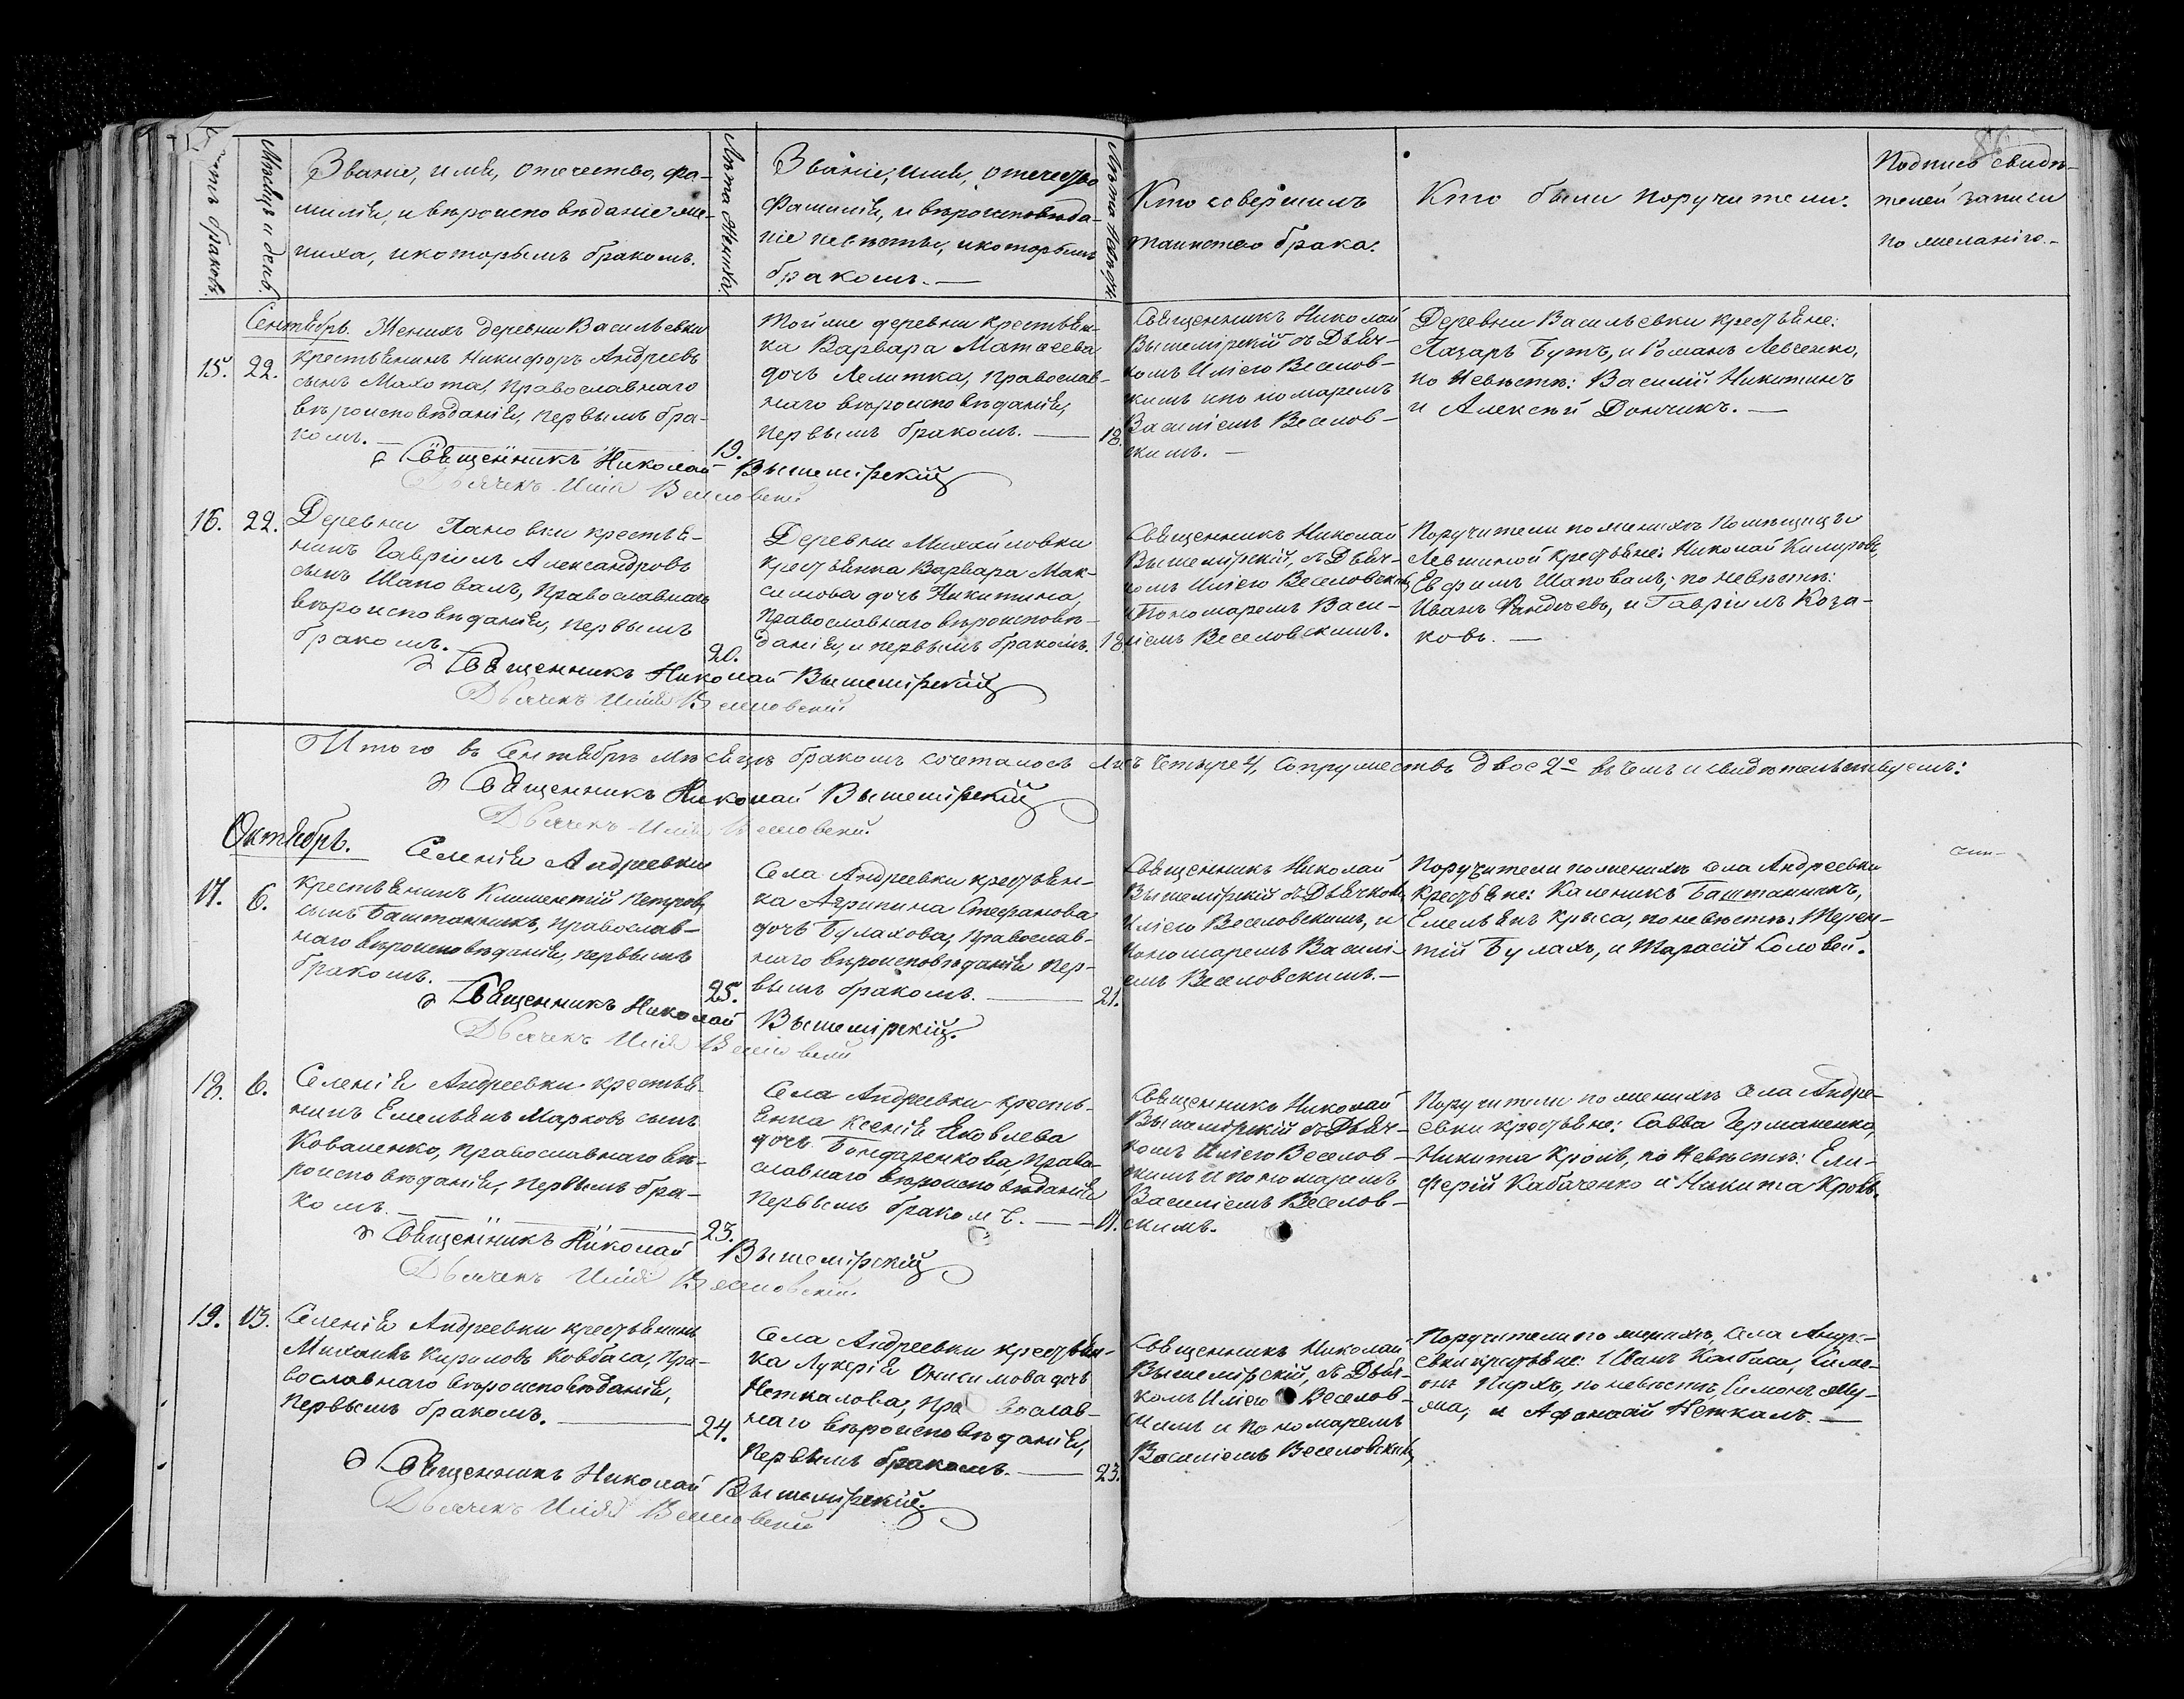 86
Счетъ браковъ.
Мѣсяцъ и день.
Званіе, имя, отечество, фа-
милія, и вѣроисповѣданіе же-
ниха, и которымъ бракомъ.
Лѣта жениха.
Званіе, имя, отечество
фамилія, и вѣроисповѣда-
ніе невѣсты, и которымъ
бракомъ.—
Лѣта невѣсты.
Кто совершилъ
таинство брака.
Кто были поручители.
Подпись свидѣ-
телей записи
по желанію.-
Сентябрь.
15. 22.
Женихъ деревни Васильевки
крестьянинъ Никифоръ Андреевъ
сынъ Махота, православнаго
вѣроисповѣданія, первымъ бра-
комъ.—
19.
Той же деревни крестьян-
ка Варвара Матѳеева
дочь Лелитка, православ-
наго вѣроисповѣданія,
первымъ бракомъ.—
18.
Священникъ Николай
Вышемірскій съ Дьяч-
комъ Иліею Веселов-
скимъ и пономаремъ
Василіемъ Веселов-
скимъ.—
Деревни Васильевки крестьяне:
Лазарь Бутъ, и Романъ Левченко,
по невѣстѣ: Василій Никитинъ
и Алексѣй Дончикъ.—
Священникъ Николай Вышемірскій
Дьячекъ Илія Веселовскій
16. 22.
Деревни Пановки крестья-
нинъ Гавріилъ Александровъ
сынъ Шаповалъ, православнаго
вѣроисповѣданія, первымъ
бракомъ.
20.
Деревни Михайловки
крестьянка Варвара Мак-
симова дочь Никитина,
православнаго вѣроисповѣ-
данія, и первымъ бракомъ.
18.
Священникъ Николай
Вышемірскій, съ Дьяч-
комъ Иліею Веселовскимъ,
и Пономаремъ Васи-
ліемъ Веселовскимъ.
Поручители по женихѣ помѣщицы
Левшиной крестьяне: Николай Кимировъ,
Евфимъ Шаповалъ; по невѣстѣ:
Иванъ, и Гавріилъ Коза-
ковъ.—
Священникъ Николай Вышемірскій
Дьячекъ Илія Веселовскій
Итого въ Сентябрѣ мѣсяцѣ бракомъ сочеталось лицъ четыре 4, супружествъ двое 2е въ чемъ и свидѣтельствуемъ:
Священникъ Николай Вышемірскій
Дьячекъ Илія Веселовскій
Октябрь.
17. 6.
Селенія Андреевки
крестьянинъ Климентій Петровъ
сынъ Баштанникъ, православ-
наго вѣроисповѣданія, первымъ
бракомъ.
25.
Села Андреевки крестьян-
ка Агрипина Стефанова
дочь Булахова, православ-
наго вѣроисповѣданія пер-
вымъ бракомъ.—
21.
Священникъ Николай
Вышемірскій съ Дьячкомъ
Иліею Веселовскимъ, и
пономаремъ Василі-
емъ Веселовскимъ.—
Поручители по женихѣ села Андреевки
крестьяне: Каленикъ Баштанникъ,
Емельянъ Крыса, по невѣстѣ: Терен-
тій Булахъ, и Тарасій Соловей.
Священникъ Николай Вышемірскій.
Дьячекъ Илія Веселовскій
18. 6.
Селенія Андреевки крестья-
нинъ Емельянъ Марковъ сынъ
Коваленко, православнаго вѣ-
роисповѣданія, первымъ бра-
комъ.
23.
Села Андреевки кресть-
янка Ксенія Яковлева
дочь Бондаренкова, право-
славнаго вѣроисповѣданія
первымъ бракомъ.—
17.
Священникъ Николай
Вышемірскій съ Дьяч-
комъ Иліею Веселов-
скимъ и пономаремъ
Василіемъ Веселов-
скимъ.
Поручители по женихѣ села Андре-
евки крестьяне: Савва Германенко,
Никита Кроль, по невѣстѣ: Ели-
ферій Кабаченко и Никита Кроль.
Священникъ Николай Вышемірскій
Дьячекъ Илія Веселовскій.
19. 13.
Селенія Андреевки крестьянинъ
Михаилъ Кириловъ Ковбаса, пра-
вославнаго вѣроисповѣданія,
первымъ бракомъ.—
24.
Села Андреевки крестьян-
ка Лукерія Онисимова дочь
Неткалова, православ-
наго вѣроисповѣданія,
первымъ бракомъ.—
23.
Священникъ Николай
Вышемірскій, съ Дьяч-
комъ Иліею Веселов-
скимъ и пономаремъ
Василіемъ Веселовскимъ,
Поручители по женихѣ, села Андре-
евки крестьяне: Иванъ Колбаса, Симе-
онъ Пирхъ, по невѣстѣ, Симонъ
и Афанасій Неткалъ.—
Священникъ Николай Вышемірскій.
Дьячекъ Илія Веселовскій